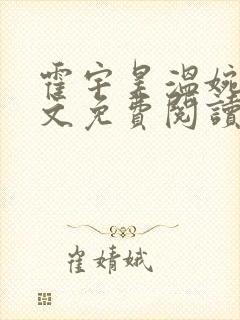 霍宇皇溫婉
文免費閱讀
崔婧娥